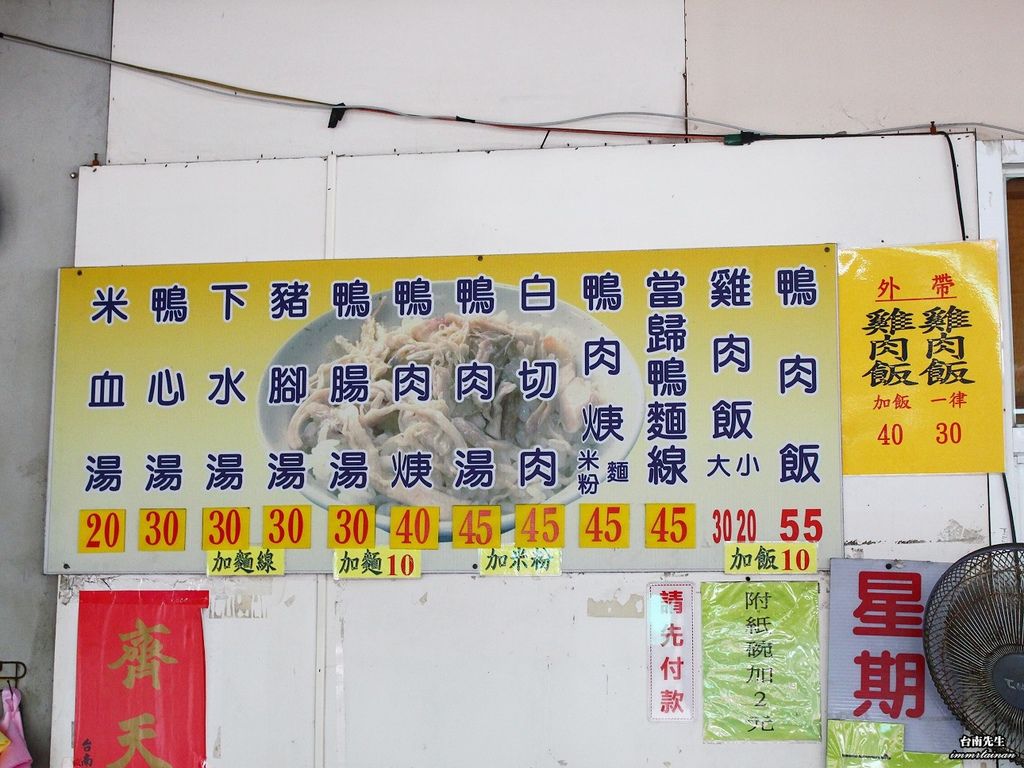 鴨肉飯 55
雞肉飯 大 小 30 20
當歸鴨麵線 45
鴨肉焿 麵 米粉 45
白切肉 45
鴨肉湯 45
鴨肉焿 40
鴨腸湯 30
豬腳湯 30
下水湯 30
鴨心湯 30
米血湯 20
加飯10
加米粉
加麵10
加麵線
外帶
雞肉飯 一律 30
雞肉飯 加飯 40
星期
附紙碗加2元
請先付款
齊天
台南
台南先生
immrtainan